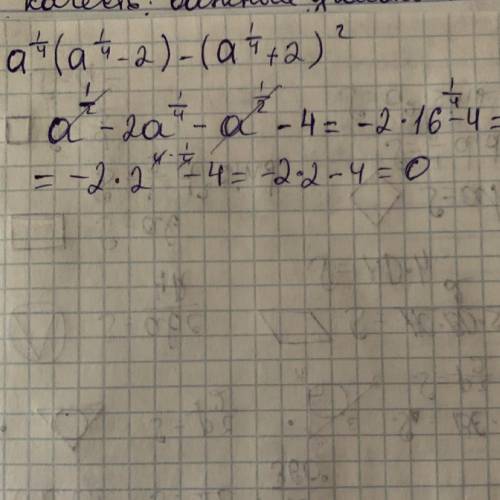 a^{1/4}(a^{1/4} - 2) - (a^{1/4} + 2)^2
a^{1/2} - 2a^{1/4} - a^{1/2} - 4 = -2 · 16^{1/4} - 4 =
= -2 · 2^{4 · 1/4} - 4 = -2 · 2 - 4 = 0